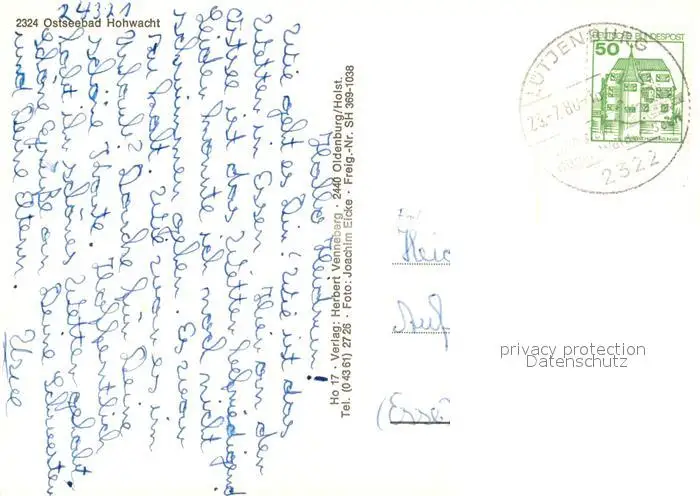 24321
2324 Ostseebad Hohwacht
Wie geht es Dir! Wie ist das
Wetter in Essen? Hier an der
Ostsee ist das Wetter befriedigend
Leider konnte ich noch nicht
schwimmen gehen. Es war
zu kalt. Wie war es in
Danke für Deine
schöne Karte. Hoffentlich
habt ihr schönes Wetter gehabt.
schöne Grüße an Deine Schwester
und Deine Eltern.
Ho 17 · Verlag: Herbert Venneberg · 2440 Oldenburg/Holst.
Tel. (0 43 61) 27 26 · Foto: Joachim Eicke · Freig.-Nr. SH 369-1038
DEUTSCHE BUNDESPOST
50
LÜTJENBURG
23.-7.80
2322
An
privacy protection
Datenschutz